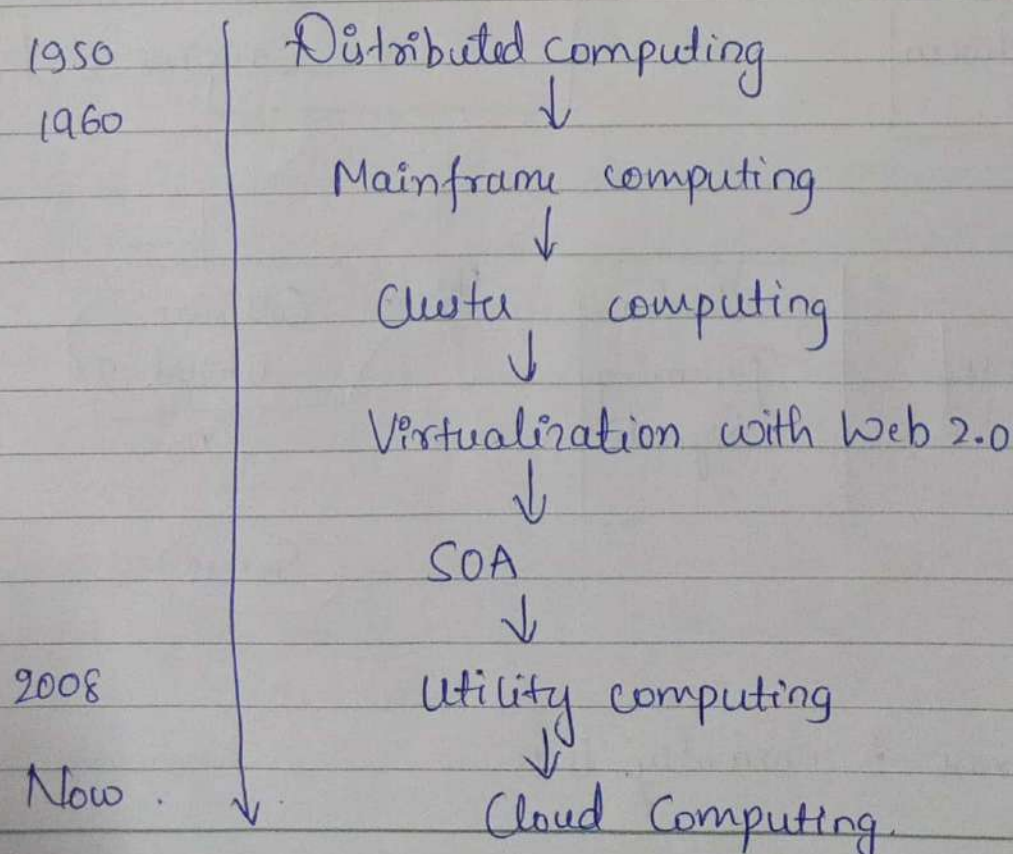 1950 Distributed computing
1960
Mainframe computing
Cluster computing
Virtualization with Web 2.0
SOA
2008 Utility computing
Now. Cloud Computing.